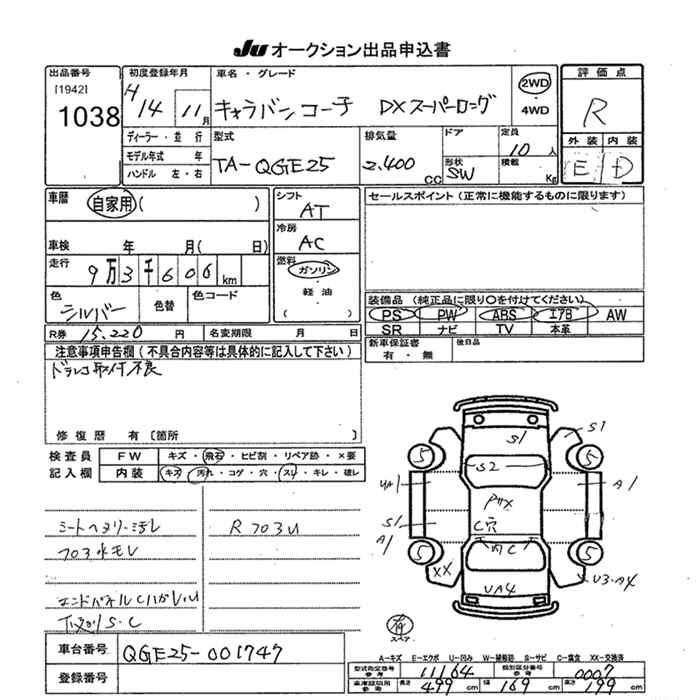 JU オークション出品申込書
出品番号
[1942]
1038
初度登録年月
H 14年 11月
車名・グレード
キャラバンコーチ DXスーパーロング
2WD
4WD
評価点
R
外装 内装
E D
ディーラー・並行
モデル年式 年
ハンドル 左・右
型式
TA-QGE25
排気量
2.400 CC
ドア
形状
SW
定員
10人
積載
Kg
車歴
自家用( )
車検 年 月( 日)
走行
9万3千606km
色
シルバー
色替
色コード
R券 15.220円
名変期限 月 日
シフト
AT
冷房
AC
燃料
ガソリン
軽油
( )
セールスポイント(正常に機能するものに限ります)
装備品(純正品に限り○を付けてください)
PS PW ABS エアB AW
SR ナビ TV 本革
新車保証書
有・無
後日品
注意事項申告欄(不具合内容等は具体的に記入して下さい)
ドラレコ取付不良
修復歴 有〔箇所
検査員
記入欄
FW キズ・飛石・ヒビ割・リペア跡・×要
内装 キズ・汚れ・コゲ・穴・スレ・キレ・破レ
エンドパネル
下廻りS・C
R
車台番号 QGE25-001747
登録番号
S1
S1
S2
5
5
UA1
A1
S1
A1
C穴
C
5
5
XX
UA4
U3・A4
スペア
A-キズ E-エクボ U-凹み W-補修跡 S-サビ C-腐食 XX-交換済
型式指定番号
参考
11164
類別区分番号
参考
0007
車庫証明用
参考
長さ 499 cm 幅 169 cm 高さ 199 cm